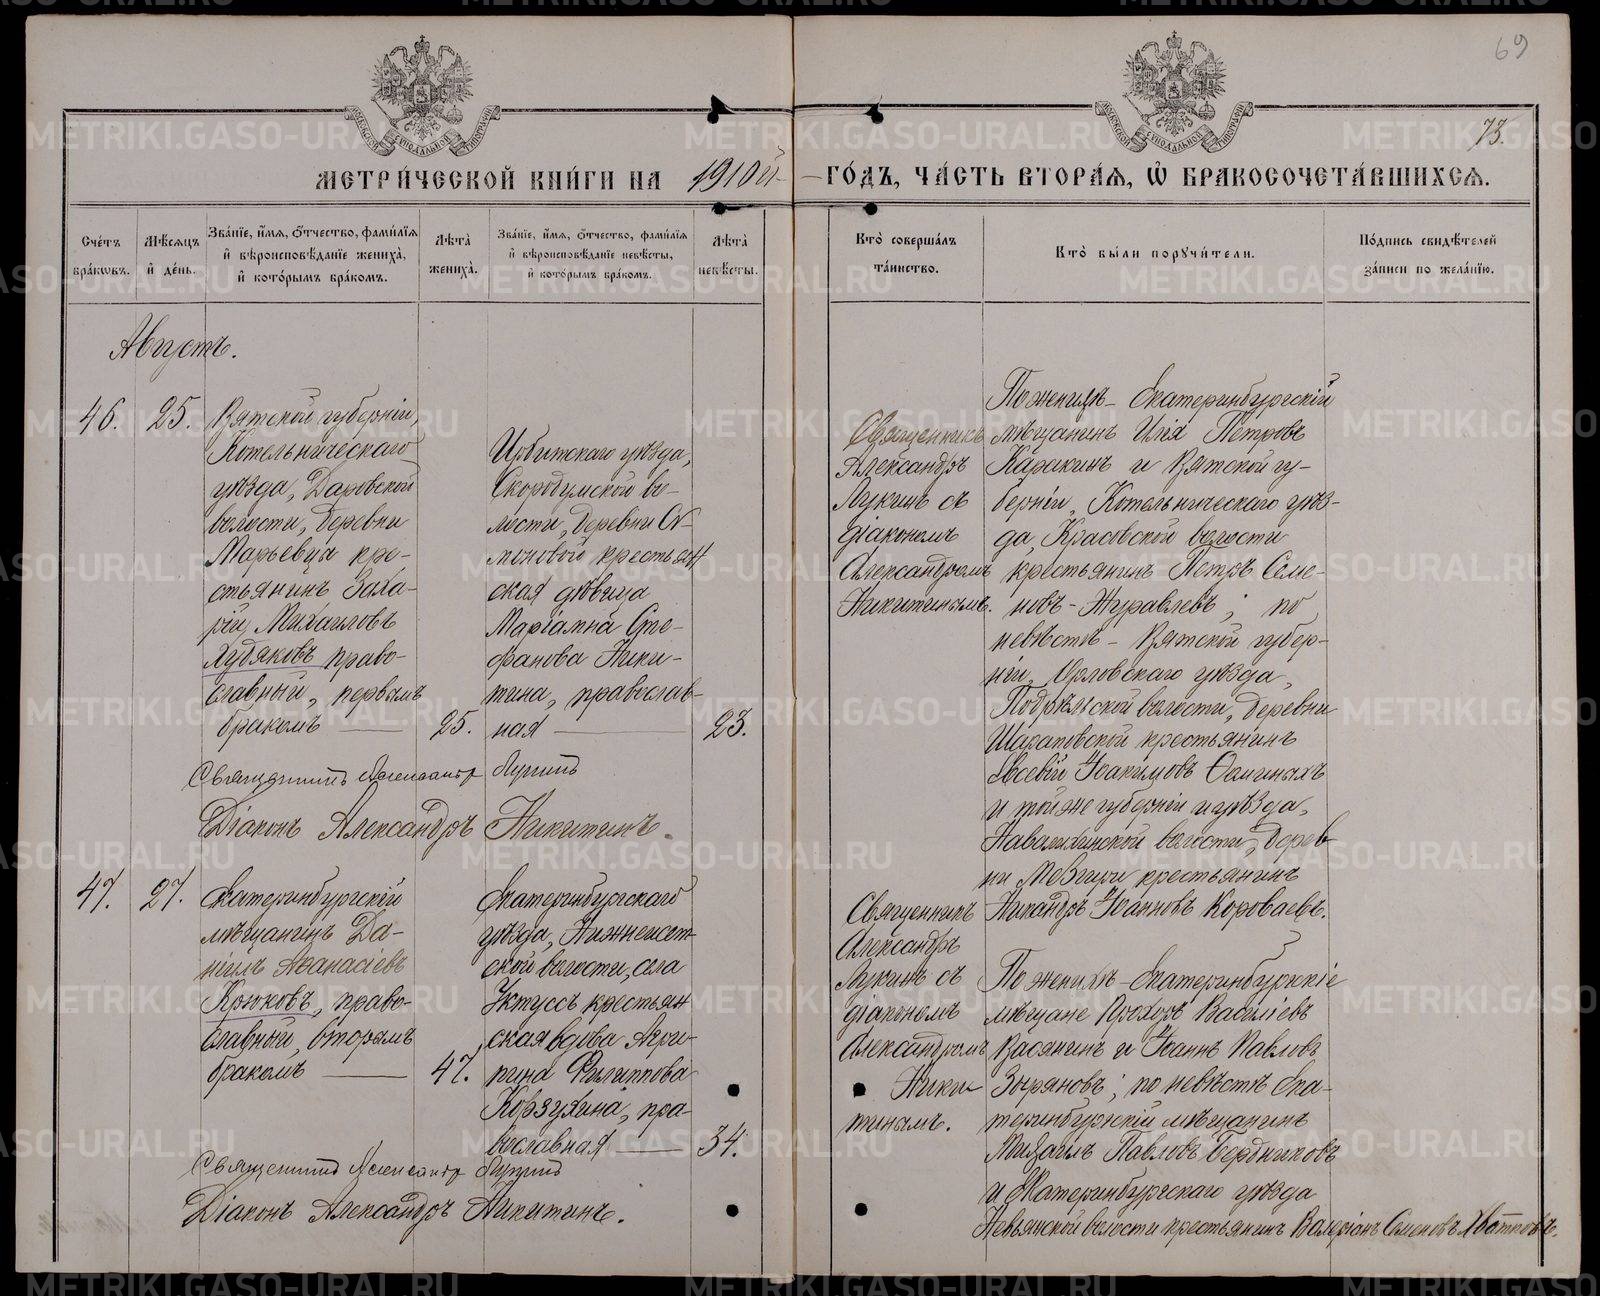 69
73.
МЕТРИ́ЧЕСКОЙ КНИ́ГИ НА 1910й ГО́ДЪ, ЧА́СТЬ ВТОРА́Я, Ѡ БРАКОСОЧЕТА́ВШИХСЯ.
Сче́тъ бра́кѡвъ.
Мѣ́сяцъ и де́нь.
Зва́нїе, и́мя, ѻ́тчество, фами́лїя и вѣроисповѣ́данїе жениха̀, и кото́рымъ бра́комъ.
Лѣ́та жениха̀.
Зва́нїе, и́мя, ѻ́тчество, фами́лїя и вѣроисповѣ́данїе невѣ́сты, и кото́рымъ бра́комъ.
Лѣ́та невѣ́сты.
Кто̀ соверша́лъ та́инство.
Кто̀ бы́ли порꙋчи́тели.
По́дпись свидѣ́телей за́писи по жела́нїю.
Августъ.
46.
25.
Вятской губерніи,
Котельническаго
уѣзда, Даровской
волости, деревни
Марьевца кре-
стьянинъ Заха-
рій Михаиловъ
Худяковъ право-
славный, первымъ
бракомъ
25.
Ирбитскаго уѣзда,
Скородумской во-
лости, деревни Си-
моновой крестьян
ская дѣвица
Маріамна Сте-
фанова Ники-
тина, православ-
ная
23.
Священникъ
Александръ
Лукинъ съ
діакономъ
Александромъ
Никитинымъ.
По женихѣ - Екатеринбургскій
мѣщанинъ Илія Петровъ
Каракинъ и Вятской гу-
берніи, Котельническаго уѣз-
да, Красовской волости
крестьянинъ Петръ Семе-
новъ - Журавлевъ; по
невѣстѣ - Вятской губер-
ніи, Орловскаго уѣзда,
Подрѣльской волости, деревни
Шараповской крестьянинъ
Евсевій Іоакимовъ Ѳоминыхъ
и той же губерніи и уѣзда,
волости, дерев-
ни крестьянинъ
Никандръ Іоанновъ Короваевъ.
Священникъ Александр Лукинъ
Діаконъ Александръ Никитинъ.
47.
27.
Екатеринбургскій
мѣщанинъ Да-
ніилъ Аѳанасіевъ
Крюковъ, право-
славный, вторымъ
бракомъ
47.
Екатеринбургскаго
уѣзда, Нижнеисет-
ской волости, села
Уктусъ крестьян
ская вдова Агри-
пина Филиппова
Корзухина, пра-
вославная
34.
Священникъ
Александръ
Лукинъ съ
діакономъ
Александромъ
Ники
тинымъ.
По женихѣ - Екатеринбургскіе
мѣщане Прохоръ Василіевъ
Васянинъ и Іоаннъ Павловъ
Зыряновъ; по невѣстѣ Ека-
теринбургскій мѣщанинъ
Михаилъ Павловъ Бердниковъ
и Екатеринбургскаго уѣзда
Невьянской волости крестьянинъ Валеріанъ Семеновъ
Священникъ Александр Лукинъ
Діаконъ Александръ Никитинъ.
METRIKI.GASO-URAL.RU